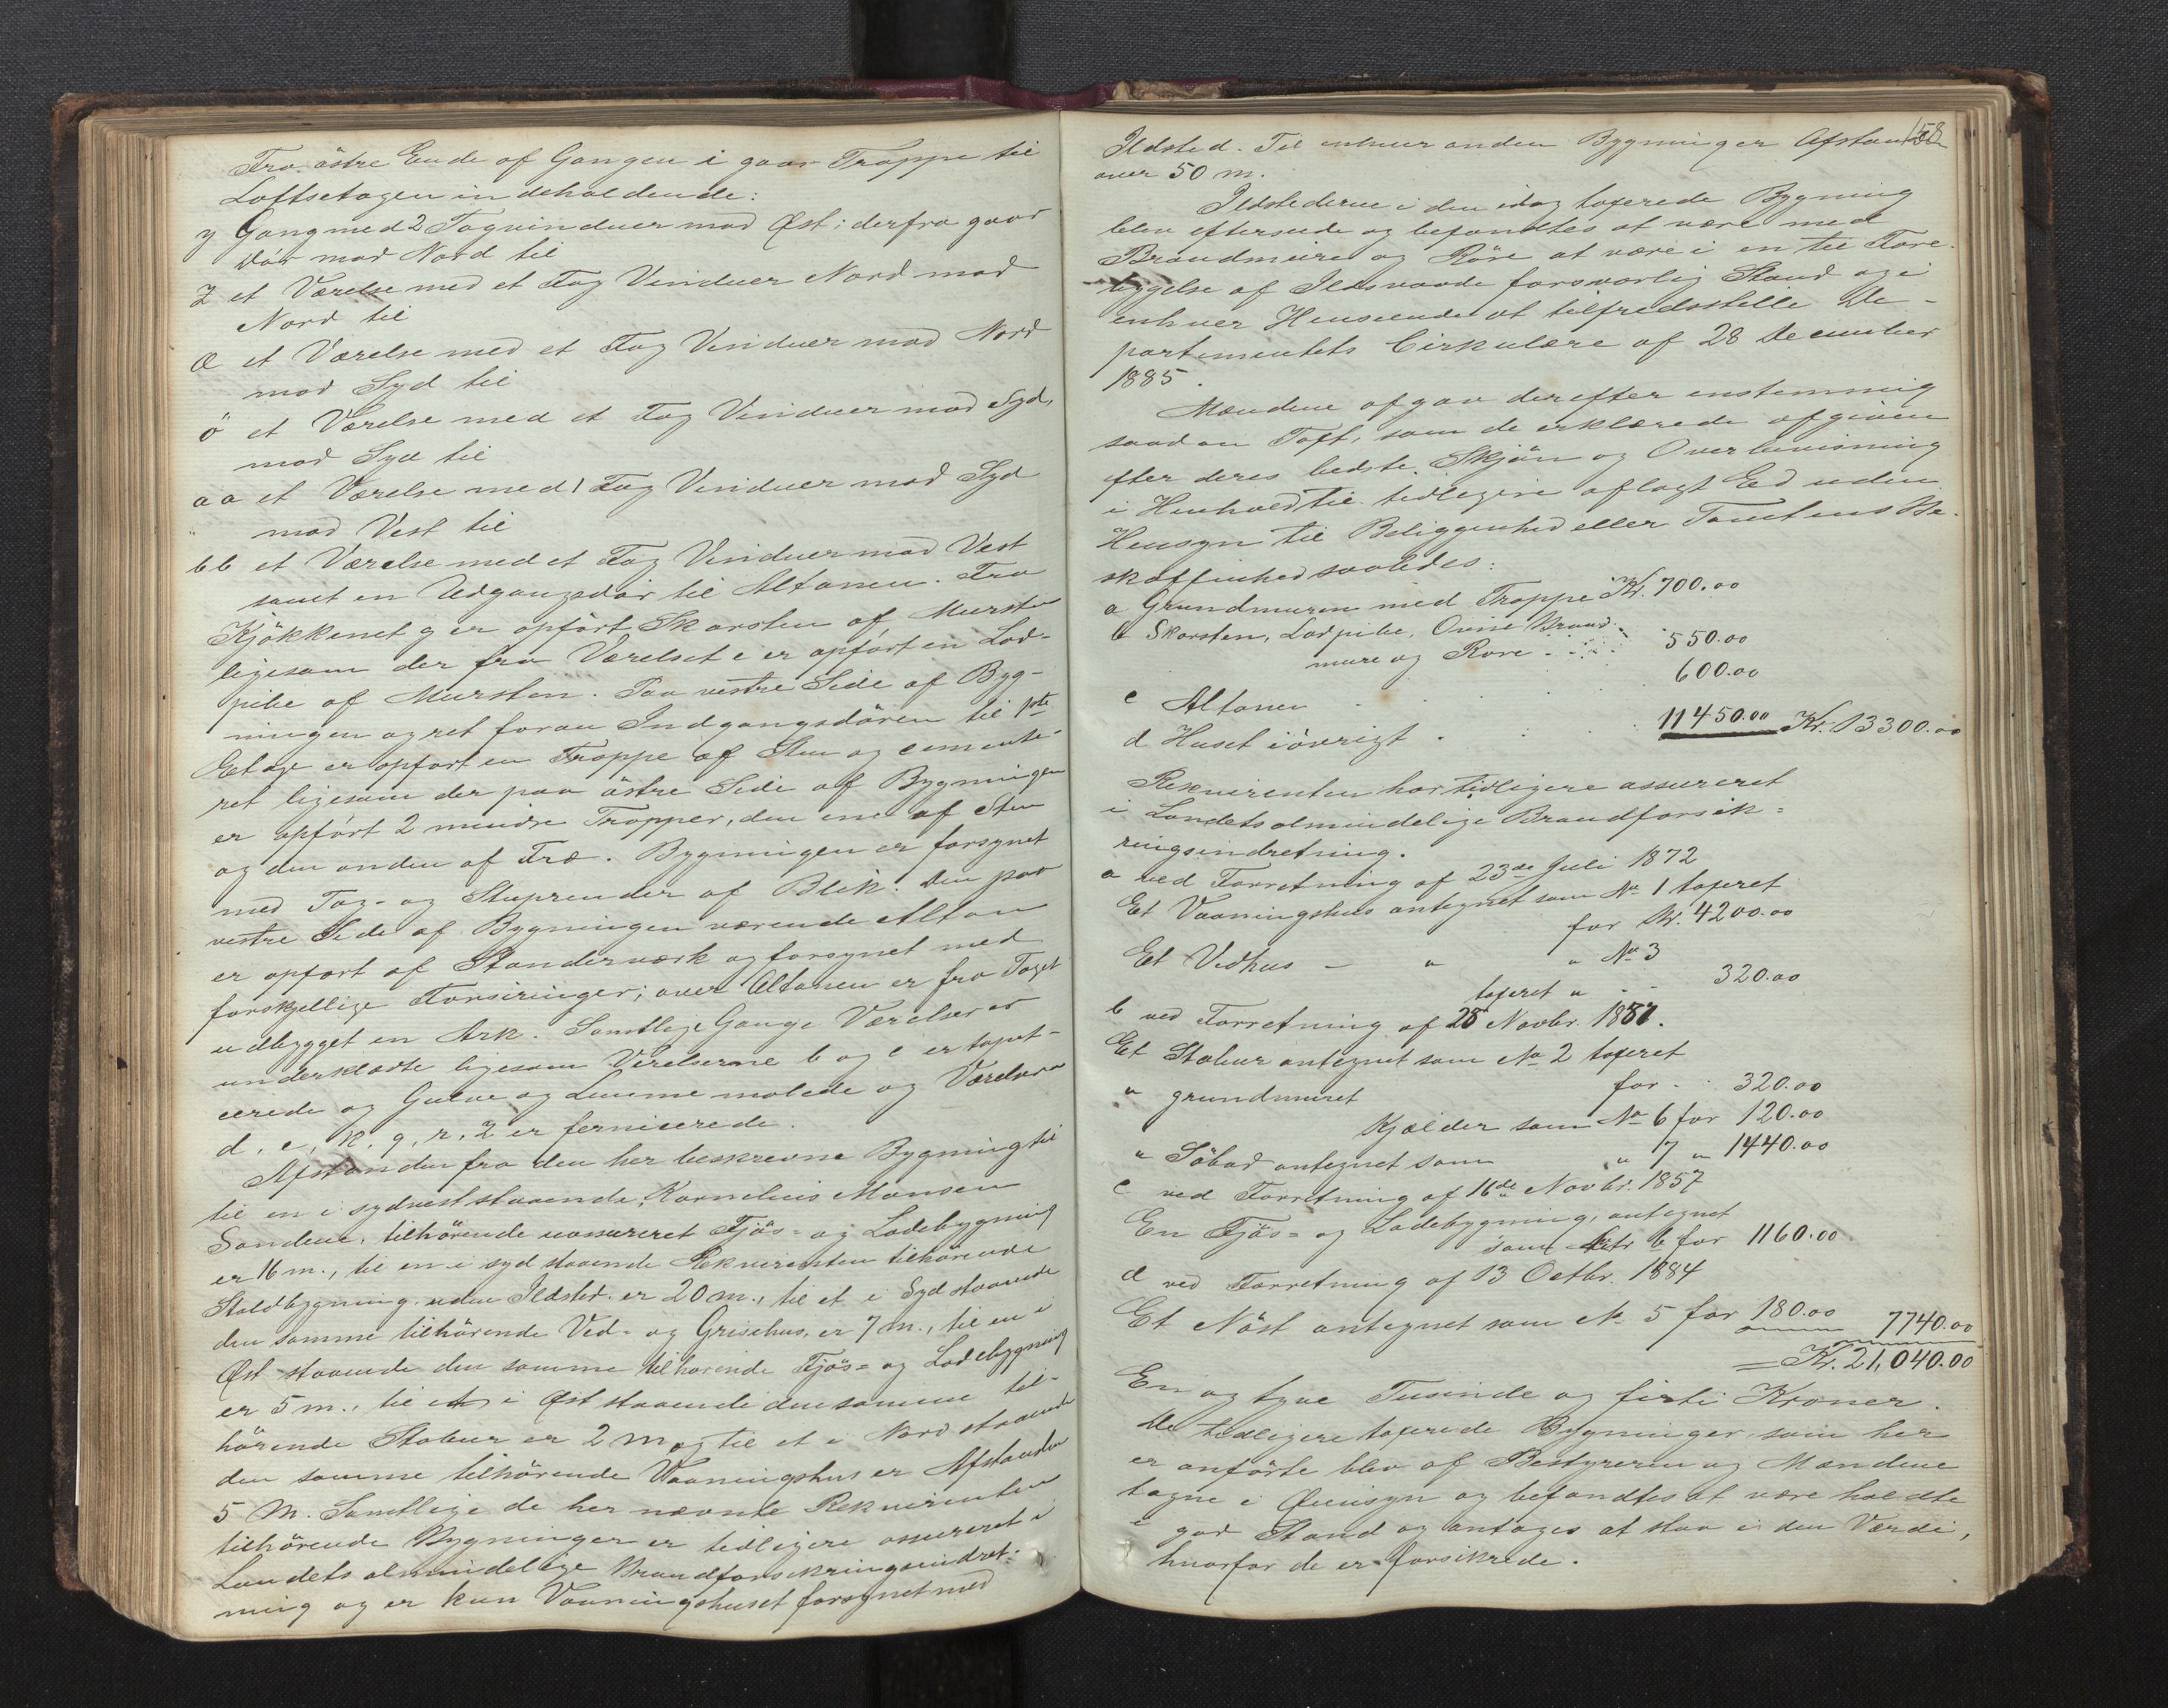 Fra östre Ende af Gangen i gaar Trappe til
Loftsetagen indeholdende:
y Gang med 2 Fag vinduer mod Øst; derfra gaar
Dör mod Nord til
z et Værelse med et Fag Vinduer Nord mod
Nord til
æ et Værelse med et Fag Vinduer mod Nord
mod Syd til
ö et Værelse med et Fag Vinduer mod Syd,
mod Syd til
aa et Værelse med 1 Fag Vinduer mod Syd
mod Vest til
bb et Værelse med et Fag Vinduer mod Vest
samt en Udgangsdör til Altanen. Fra
Kjökkenet g er opfört Skorsten af Mursten
ligesom der fra Værelset i er opfört en Lod-
pibe af Mursten. Paa vestre Side af Byg-
ningen og ret foran Indgangsdören til 1ste
Etage er opfört en Trappe af Sten og cemente-
ret ligesom der paa östre Side af Bygningen
er opfört 2 mindre Trapper, den ene af Sten
og den anden af Træ. Bygningen er forsynet
med Tag- og Stuprender af Blik. Den paa
vestre Side af Bygningen værende Altan
er opfört af Standerværk og forsynet med
forskjellige Forsiringer; over Altanen er fra Taget
udbygget en Ark. Samtlige Gange Værelser er
underklædte ligesom Værelserne b og c er tapet-
cerede og Gulve og Lemme malede og Værelserne
d, e, k, q, r, z er ferniserede.
Afstanden fra den her beskrevne Bygning til
til en i sydvest staaende, Kornelius Monsen
Sandene, tilhörende uassureret Fjös- og Ladebygning
er 16 m., til en i syd staaende Rekvirenten tilhörende
Staldbygning uden Ildsted er 20 m., til et i Syd staaende
den samme tilhörende Ved- og Grisehus, er 7 m., til en i
Øst staaende den samme tilhörende Fjös- og Ladebygning
er 5 m., til et i Øst staaende den samme til-
hörende Stabur er 2 m og til et i Nord staaende
den samme tilhörende Vaaningshus er Afstanden
5 m. Samtlige de her nævnte Rekvirenten
tilhörende Bygninger er tidligere assureret i
Landets almindelige Brandforsikringsindret-
ning og er kun Vaaningshuset forsynet med
158
Ildsted. Til enhver anden Bygninger Afstanden
over 50 m.
Ildstederne i den idag taxerede Bygning
blev efterseede og befandtes at være med
Brandmure og Röre at være i en til Fore-
byggelse af Ildsvaade forsvarlig Stand og i
enhver Henseende at tilfredsstille De-
partementets Cirkulære af 28 December
1885.
Mændene afgav derefter enstemmig
saadan Taxt, som de erklærede afgiven
efter deres bedste Skjön og Overbevisning
i Henhold til tidligere aflagt Ed uden
Hensyn til Beliggenhed eller Tomtens Be-
skaffenhed saaledes:
a Grundmuren med Trappe Kr. 700.00
b Skorsten, Lodpibe, Ovne Brand-
mure og Röre 550.00
c Altanen 600.00
d Huset iövrigt 11450.00 Kr. 13300.00
Rekvirenten har tidligere assureret
i Landets almindelige Brandforsik=
ringsindretning.
a ved Forretning af 23de Juli 1872
Et Vaaningshus antegnet som No 1 taxeret
for Kr. 4200.00
Et Vedhus - " " No 3
taxeret " - - 320.00
b ved Forretning af 28 Novbr. 1887.
Et Stabur antegnet som No 2 taxeret
for - 320.00
" grundmuret
Kjælder som No 6 for 120.00
" Söbod antegnet som " 7 " 1440.00
c ved Forretning af 16de Novbr. 1857
En Fjös= og Ladebygning, antegnet
som Litr b for 1160.00
d ved Forretning af 13 Octbr. 1884
Et Nöst antegnet som No 5 for 180.00 7740.00
Kr. 21,040.00
En og tyve Tusinde og firti Kroner.
De tidligere taxerede Bygninger som her
er anförte blev af Bestyreren og Mændene
tagne i Øiensyn og befandtes at være holdte
i god Stand og antages at staa i den Værdi,
hvorfor de er forsikrede.